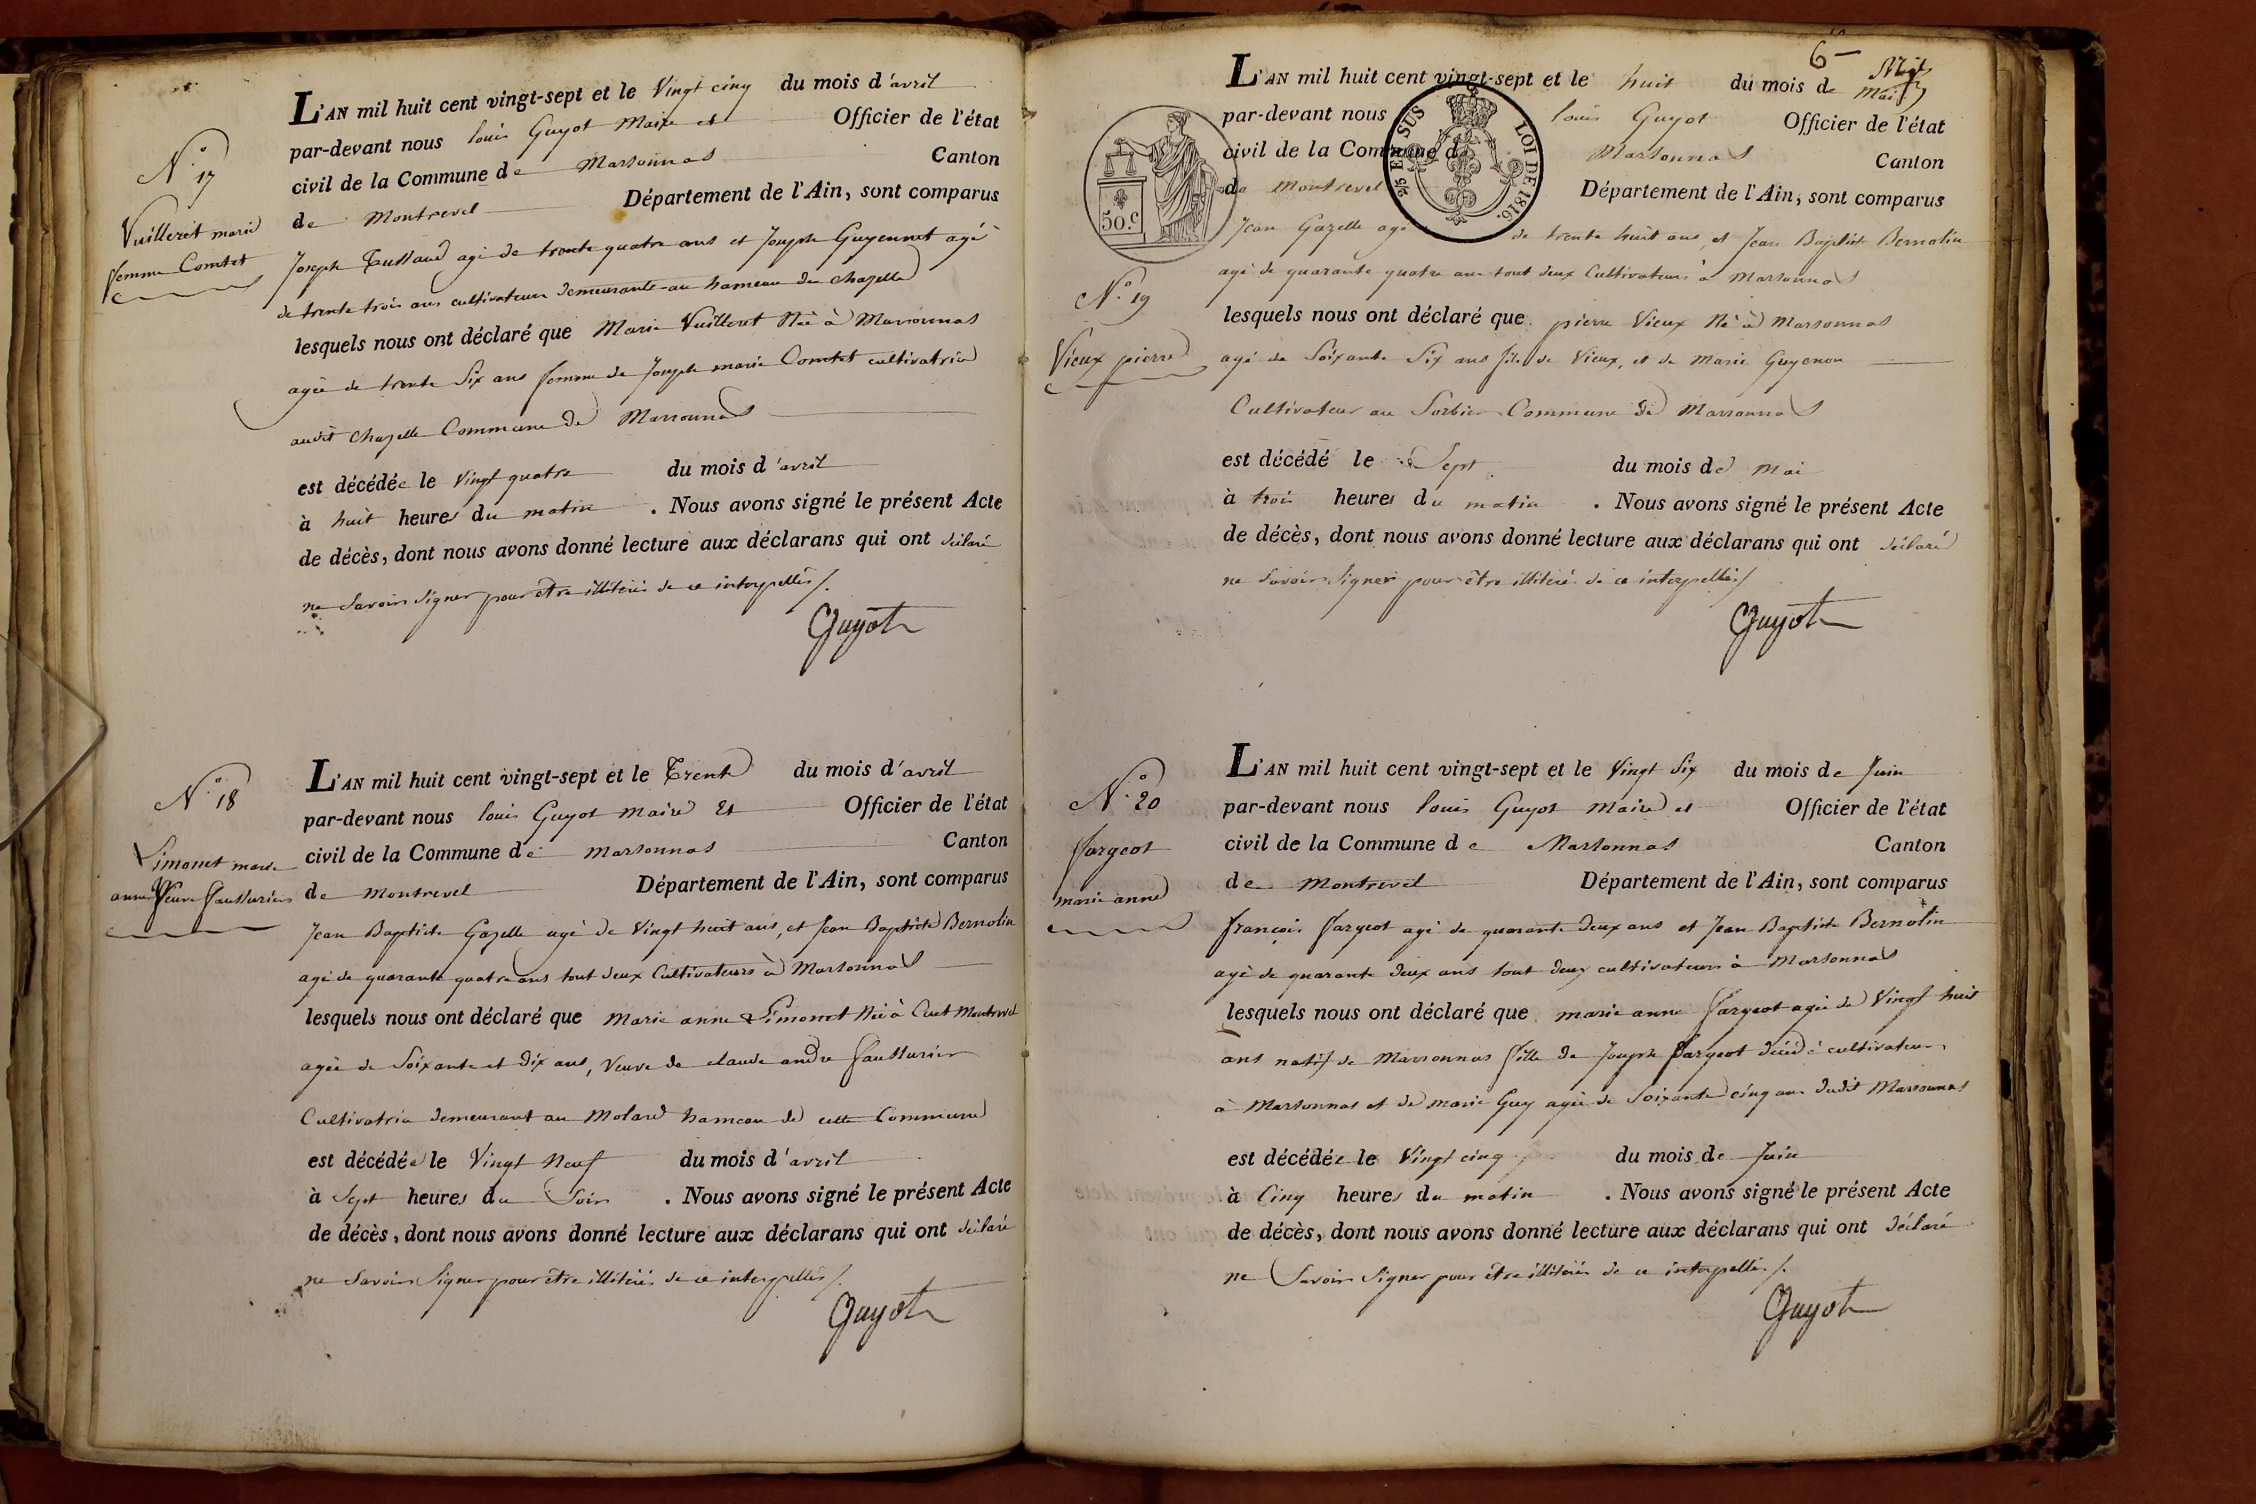 N.o 17
Vuilleret marie
femme Comtet
L'AN mil huit cent vingt-sept et le Vingt cinq du mois d'avril
par-devant nous louis Guyot Maire et Officier de l'état
civil de la Commune de Marsonnas Canton
de Montrevel Département de l'Ain, sont comparus
Joseph agé de trente quatre ans et Joseph Guyennet agé
de trente trois ans cultivateurs demeurants au hameau du Chazelle
lesquels nous ont déclaré que Marie Vuilleret Née à Marsonnas
agée de trente Six ans femme de Joseph marie Comtet cultivatrice
audit Chazelle Commune de Marsonnas
est décédée le Vingt quatre du mois d'avril
à huit heures du matin . Nous avons signé le présent Acte
de décès, dont nous avons donné lecture aux déclarans qui ont déclaré
ne Savoir Signer pour être illitérés de ce interpellés /.
Guyot
N.o 18
Limonet marie
anne Veuve Fausturier
L'AN mil huit cent vingt-sept et le Trente du mois d'avril
par-devant nous louis Guyot Maire Et Officier de l'état
civil de la Commune de Marsonnas Canton
de Montrevel Département de l'Ain, sont comparus
Jean Baptiste Gazelle agé de Vingt huit ans, et Jean Baptiste Bernolin
agé de quarante quatre ans tout deux Cultivateurs à Marsonnas
lesquels nous ont déclaré que Marie anne Limonet Née à Cuet Montrevel
agée de Soixante et Dix ans, Veuve de claude andre
Cultivatrice demeurant au Molard hameau de cette Commune
est décédée le Vingt Neuf du mois d'avril
à Sept heures du Soir . Nous avons signé le présent Acte
de décès, dont nous avons donné lecture aux déclarans qui ont déclaré
ne Savoir Signer pour être illitérés de ce interpellés /.
Guyot
6
L'AN mil huit cent vingt-sept et le huit du mois de mai
par-devant nous louis Guyot Officier de l'état
civil de la Commune de Marsonnas Canton
de Montrevel Département de l'Ain, sont comparus
50.c
ET SUS LOI DE 1816.
N.o 19
Vieux pierre
Jean Gazelle agé de trente huit ans, et Jean Baptiste Bernolin
agé de quarante quatre ans tout deux Cultivateurs à Marsonnas
lesquels nous ont déclaré que pierre Vieux Né à Marsonnas
agé de Soixante Six ans fils de Vieux, et de Marie Guyenon
Cultivateur au Sorbier Commune de Marsonnas
est décédé le Sept du mois de mai
à trois heures du matin . Nous avons signé le présent Acte
de décès, dont nous avons donné lecture aux déclarans qui ont déclaré
ne Savoir Signer pour être illitérés de ce interpellés /
Guyot
N.o 20
Fargeot
marie anne
L'AN mil huit cent vingt-sept et le Vingt Six du mois de Juin
par-devant nous louis Guyot Maire et Officier de l'état
civil de la Commune de Marsonnas Canton
de Montrevel Département de l'Ain, sont comparus
françois Fargeot agé de quarante deux ans et Jean Baptiste Bernolin
agé de quarante deux ans tout deux cultivateurs à Marsonnas
lesquels nous ont déclaré que marie anne Fargeot agée de Vingt huit
ans natif de Marsonnas fille de Joseph Fargeot décédé cultivateur
à Marsonnas et de marie Guy agée de Soixante cinq ans dudit Marsonnas
est décédée le Vingt cinq du mois de Juin
à Cinq heures du matin . Nous avons signé le présent Acte
de décès, dont nous avons donné lecture aux déclarans qui ont déclaré
ne Savoir Signer pour être illitérés de ce interpellés /.
Guyot